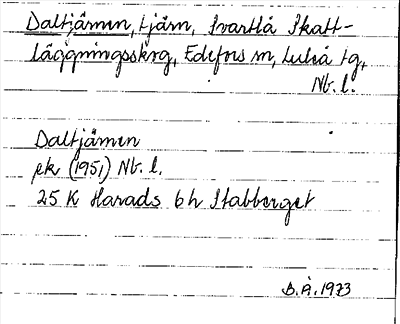 Daltjärnen, tjärn, Svartlå Skatt-
läggningsskog, Edefors sn, Luleå tg,
Nb. l.
Daltjärnen
ek (1951) Nb. l.
25 K Harads 6 h Stabberget
B.Å. 1973